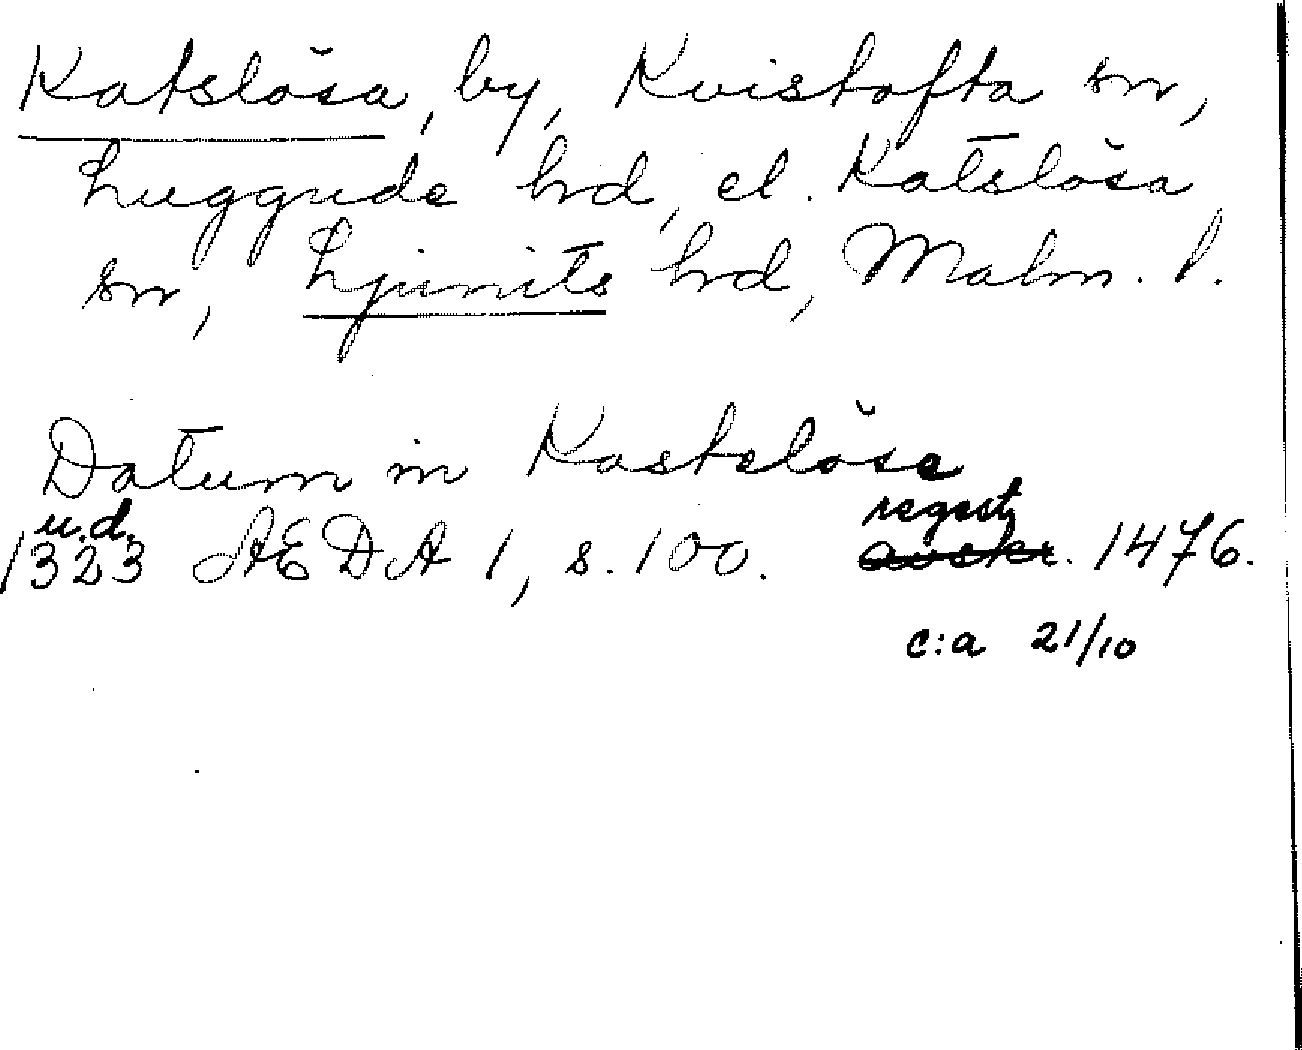 Katslösa, by, Kvistofta sn,
Luggude hd, el. Katslösa
sn, Ljunits hd, Malm. l.
Datum in Kastslöse
u.d. regest
1323 AEDA 1, s. 100. avskr. 1476.
c:a 21/10